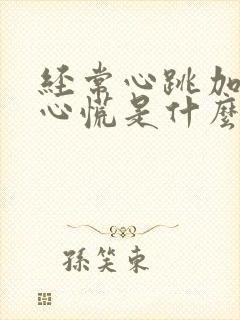 经常心跳加
心慌是什麼
孫笑東